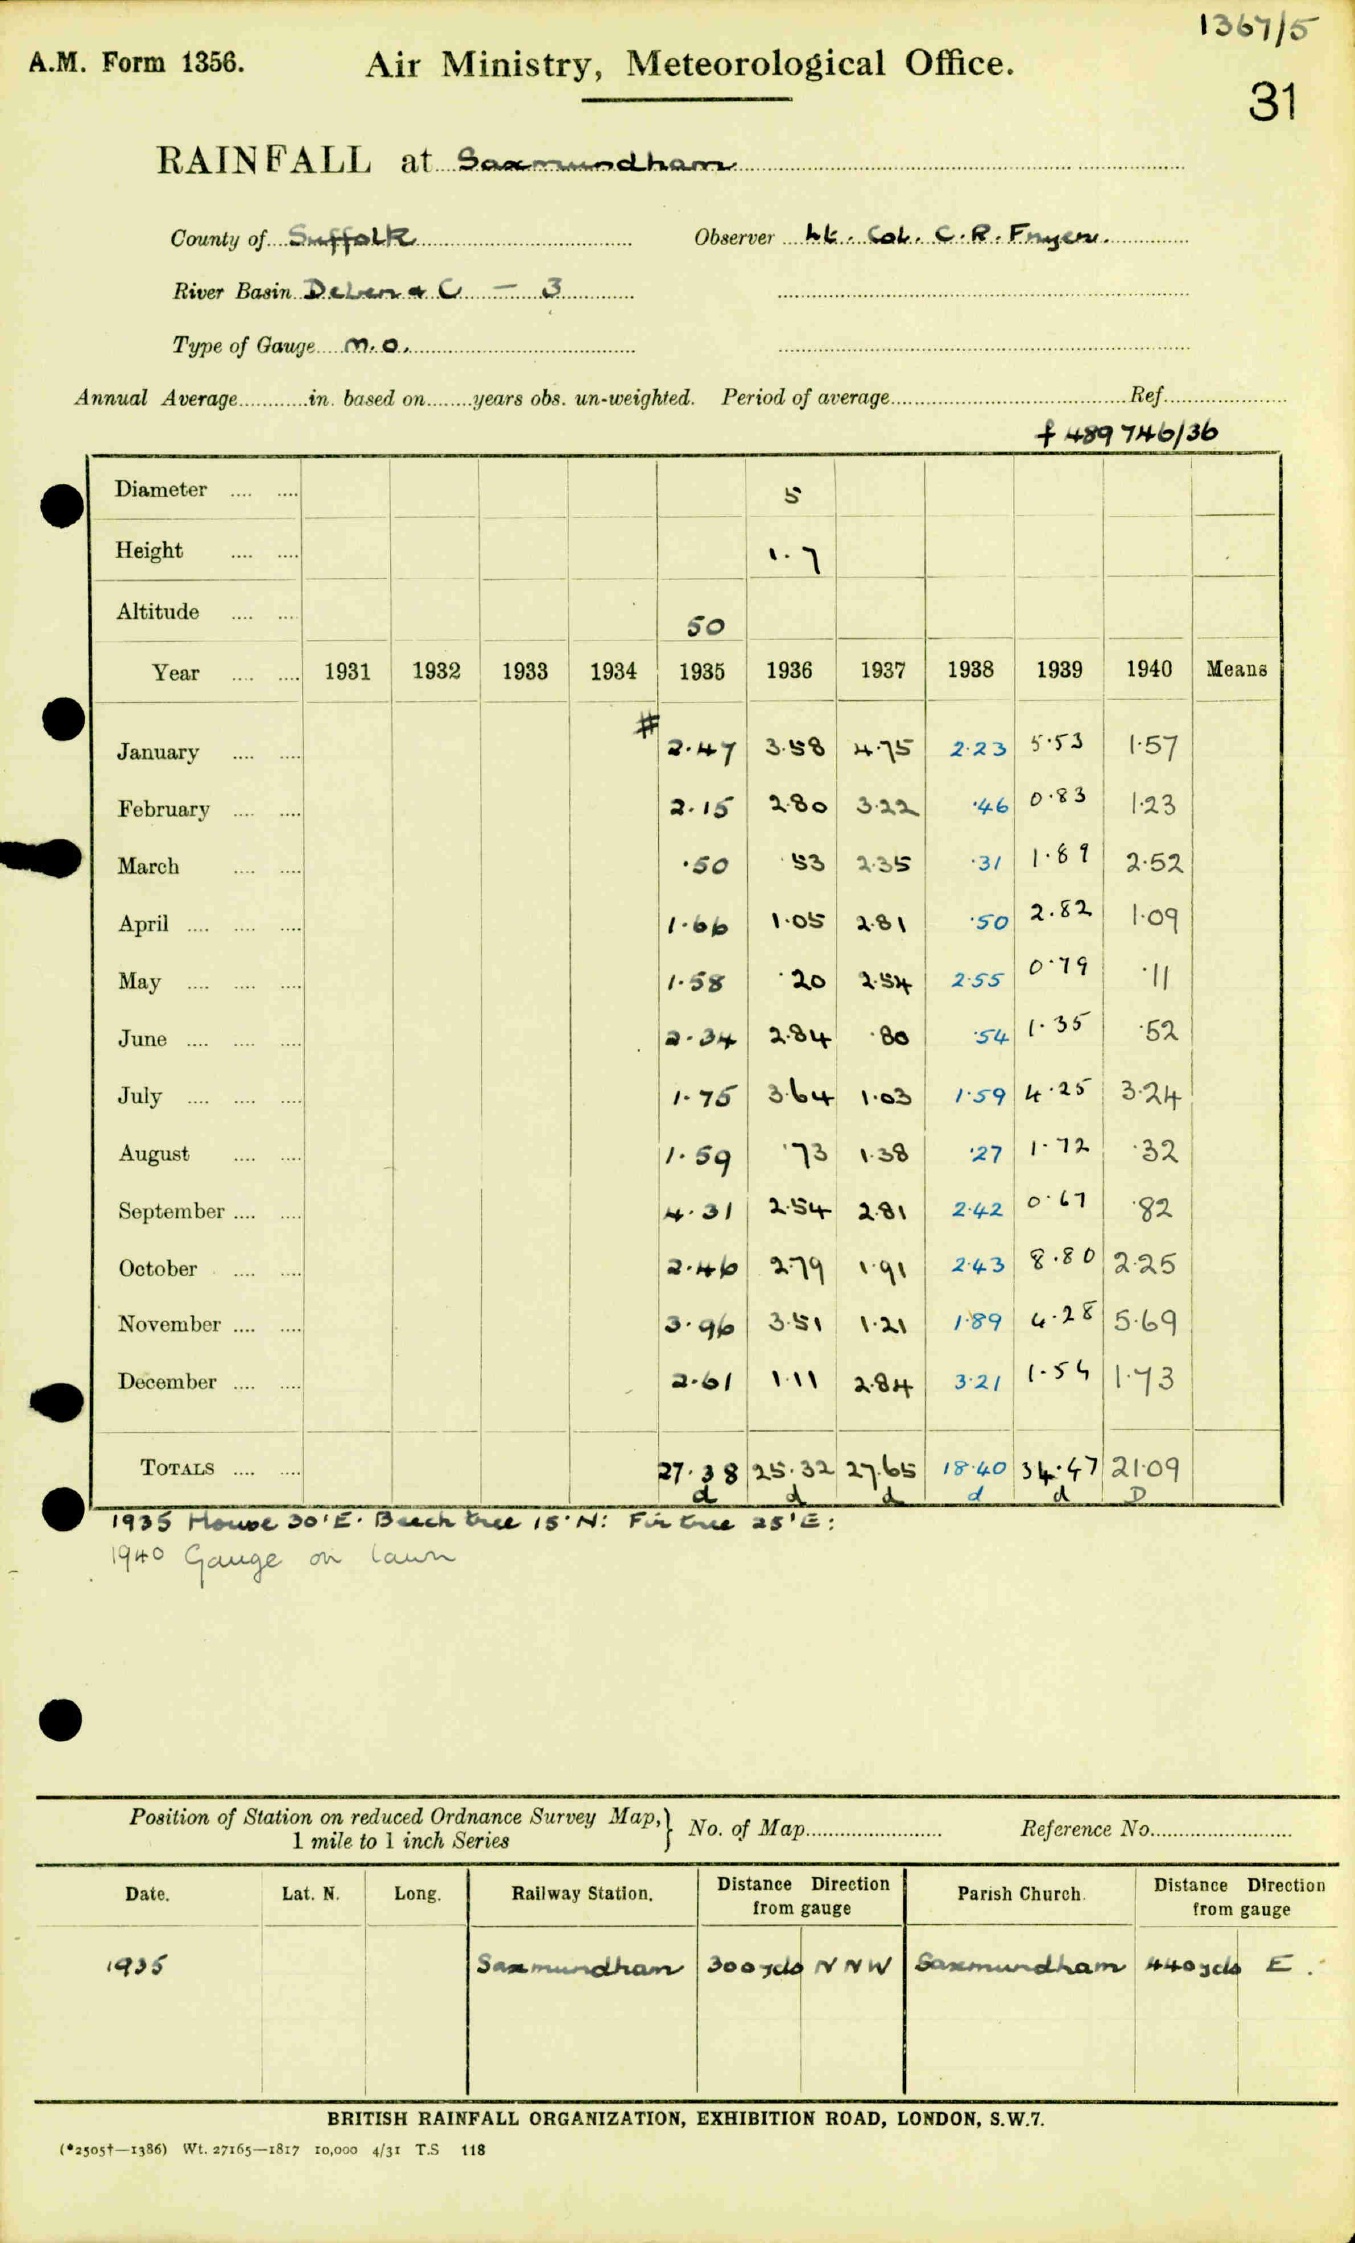 1367/5
A.M. Form 1356. Air Ministry, Meteorological Office.
31
RAINFALL at Saxmundham
County of Suffolk Observer Lt. Col. C. R. Fryer.
River Basin Deben & C — 3
Type of Gauge M.O.
Annual Average in. based on years obs. un-weighted. Period of average Ref.
f 489746/36
Diameter 5
Height 1.7
Altitude 50
Year 1931 1932 1933 1934 1935 1936 1937 1938 1939 1940 Means
#
January 2.47 3.58 4.75 2.23 5.53 1.57
February 2.15 2.80 3.22 .46 0.83 1.23
March .50 .53 2.35 .31 1.89 2.52
April 1.66 1.05 2.81 .50 2.82 1.09
May 1.58 .20 2.54 2.55 0.79 .11
June 2.34 2.84 .80 .54 1.35 .52
July 1.75 3.64 1.03 1.59 4.25 3.24
August 1.59 .73 1.38 .27 1.72 .32
September 4.31 2.54 2.81 2.42 0.67 .82
October 2.46 2.79 1.91 2.43 8.80 2.25
November 3.96 3.51 1.21 1.89 4.28 5.69
December 2.61 1.11 2.84 3.21 1.54 1.73
TOTALS 27.38 25.32 27.65 18.40 34.47 21.09
d d d d d D
1935 House 30'E. Beech tree 15'N: Fir tree 25'E:
1940 Gauge on lawn
Position of Station on reduced Ordnance Survey Map,} No. of Map Reference No.
1 mile to 1 inch Series
Date. Lat. N. Long. Railway Station. Distance Direction from gauge Parish Church. Distance Direction from gauge
1935 Saxmundham 300yds NNW Saxmundham 440yds E.
BRITISH RAINFALL ORGANIZATION, EXHIBITION ROAD, LONDON, S.W.7.
(*2505†—1386) Wt. 27165—1817 10,000 4/31 T.S 118